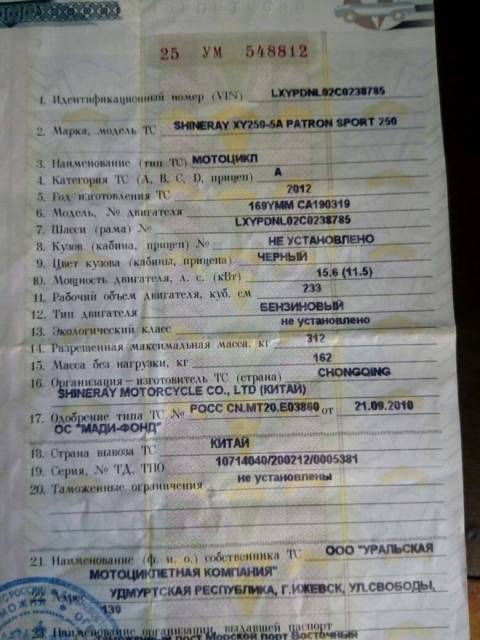 25 УМ 548812
1. Идентификационный номер (VIN) LXYPDNL02C0238785
2. Марка, модель ТС SHINERAY XY250-5A PATRON SPORT 250
3. Наименование (тип ТС) МОТОЦИКЛ
4. Категория ТС (А, В, С, D, прицеп) А
5. Год изготовления ТС 2012
6. Модель, № двигателя 169YMM CA190319
7. Шасси (рама) № LXYPDNL02C0238785
8. Кузов (кабина, прицеп) № НЕ УСТАНОВЛЕНО
9. Цвет кузова (кабины, прицепа) ЧЕРНЫЙ
10. Мощность двигателя, л. с. (кВт) 15.6 (11.5)
11. Рабочий объем двигателя, куб. см 233
12. Тип двигателя БЕНЗИНОВЫЙ
13. Экологический класс не установлено
14. Разрешенная максимальная масса, кг 312
15. Масса без нагрузки, кг 162
16. Организация–изготовитель ТС (страна) CHONGQING
SHINERAY MOTORCYCLE CO., LTD (КИТАЙ)
17. Одобрение типа ТС № РОСС CN.MT20.E03860 от 21.09.2010
ОС "МАДИ-ФОНД"
18. Страна вывоза ТС КИТАЙ
19. Серия, № ТД, ТПО 10714040/200212/0005381
20. Таможенные ограничения не установлены
21. Наименование (ф. и. о.) собственника ТС ООО "УРАЛЬСКАЯ
МОТОЦИКЛЕТНАЯ КОМПАНИЯ"
УДМУРТСКАЯ РЕСПУБЛИКА, Г.ИЖЕВСК, УЛ.СВОБОДЫ,
139
23. Наименование организации, выдавшей паспорт
Таможенный пост Морской порт Восточный